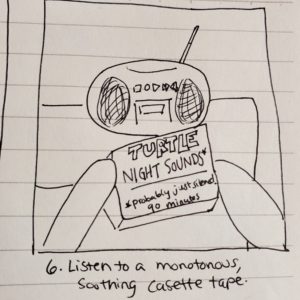 TURTLE
NIGHT SOUNDS*
*probably just silence!
90 minutes
6. Listen to a monotonous,
Soothing casette tape.